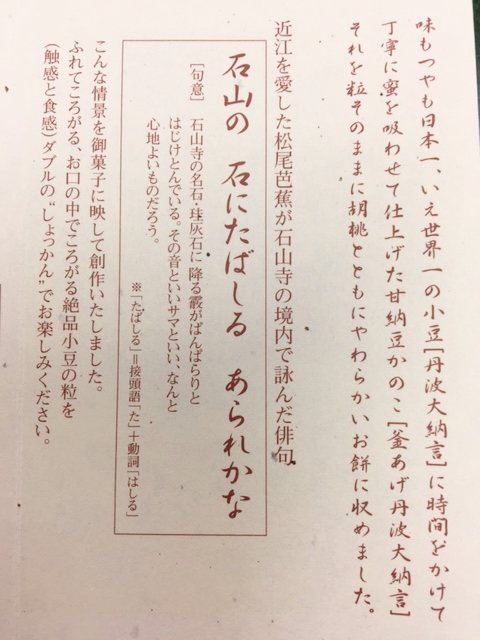 味もつやも日本一、いえ世界一の小豆[丹波大納言]に時間をかけて
丁寧に蜜を吸わせて仕上げた甘納豆かのこ[釜あげ丹波大納言]
それを粒そのままに胡桃とともにやわらかいお餅に収めました。
近江を愛した松尾芭蕉が石山寺の境内で詠んだ俳句
石山の 石にたばしる あられかな
[句意] 石山寺の名石・珪灰石に降る霰がばんばらりと
はじけとんでいる。その音といいサマといい、なんと
心地よいものだろう。
※「たばしる」=接頭語「た」+動詞「はしる」
こんな情景を御菓子に映して創作いたしました。
ふれてころがる、お口の中でころがる絶品小豆の粒を
(触感と食感)ダブルの“しょっかん”でお楽しみください。